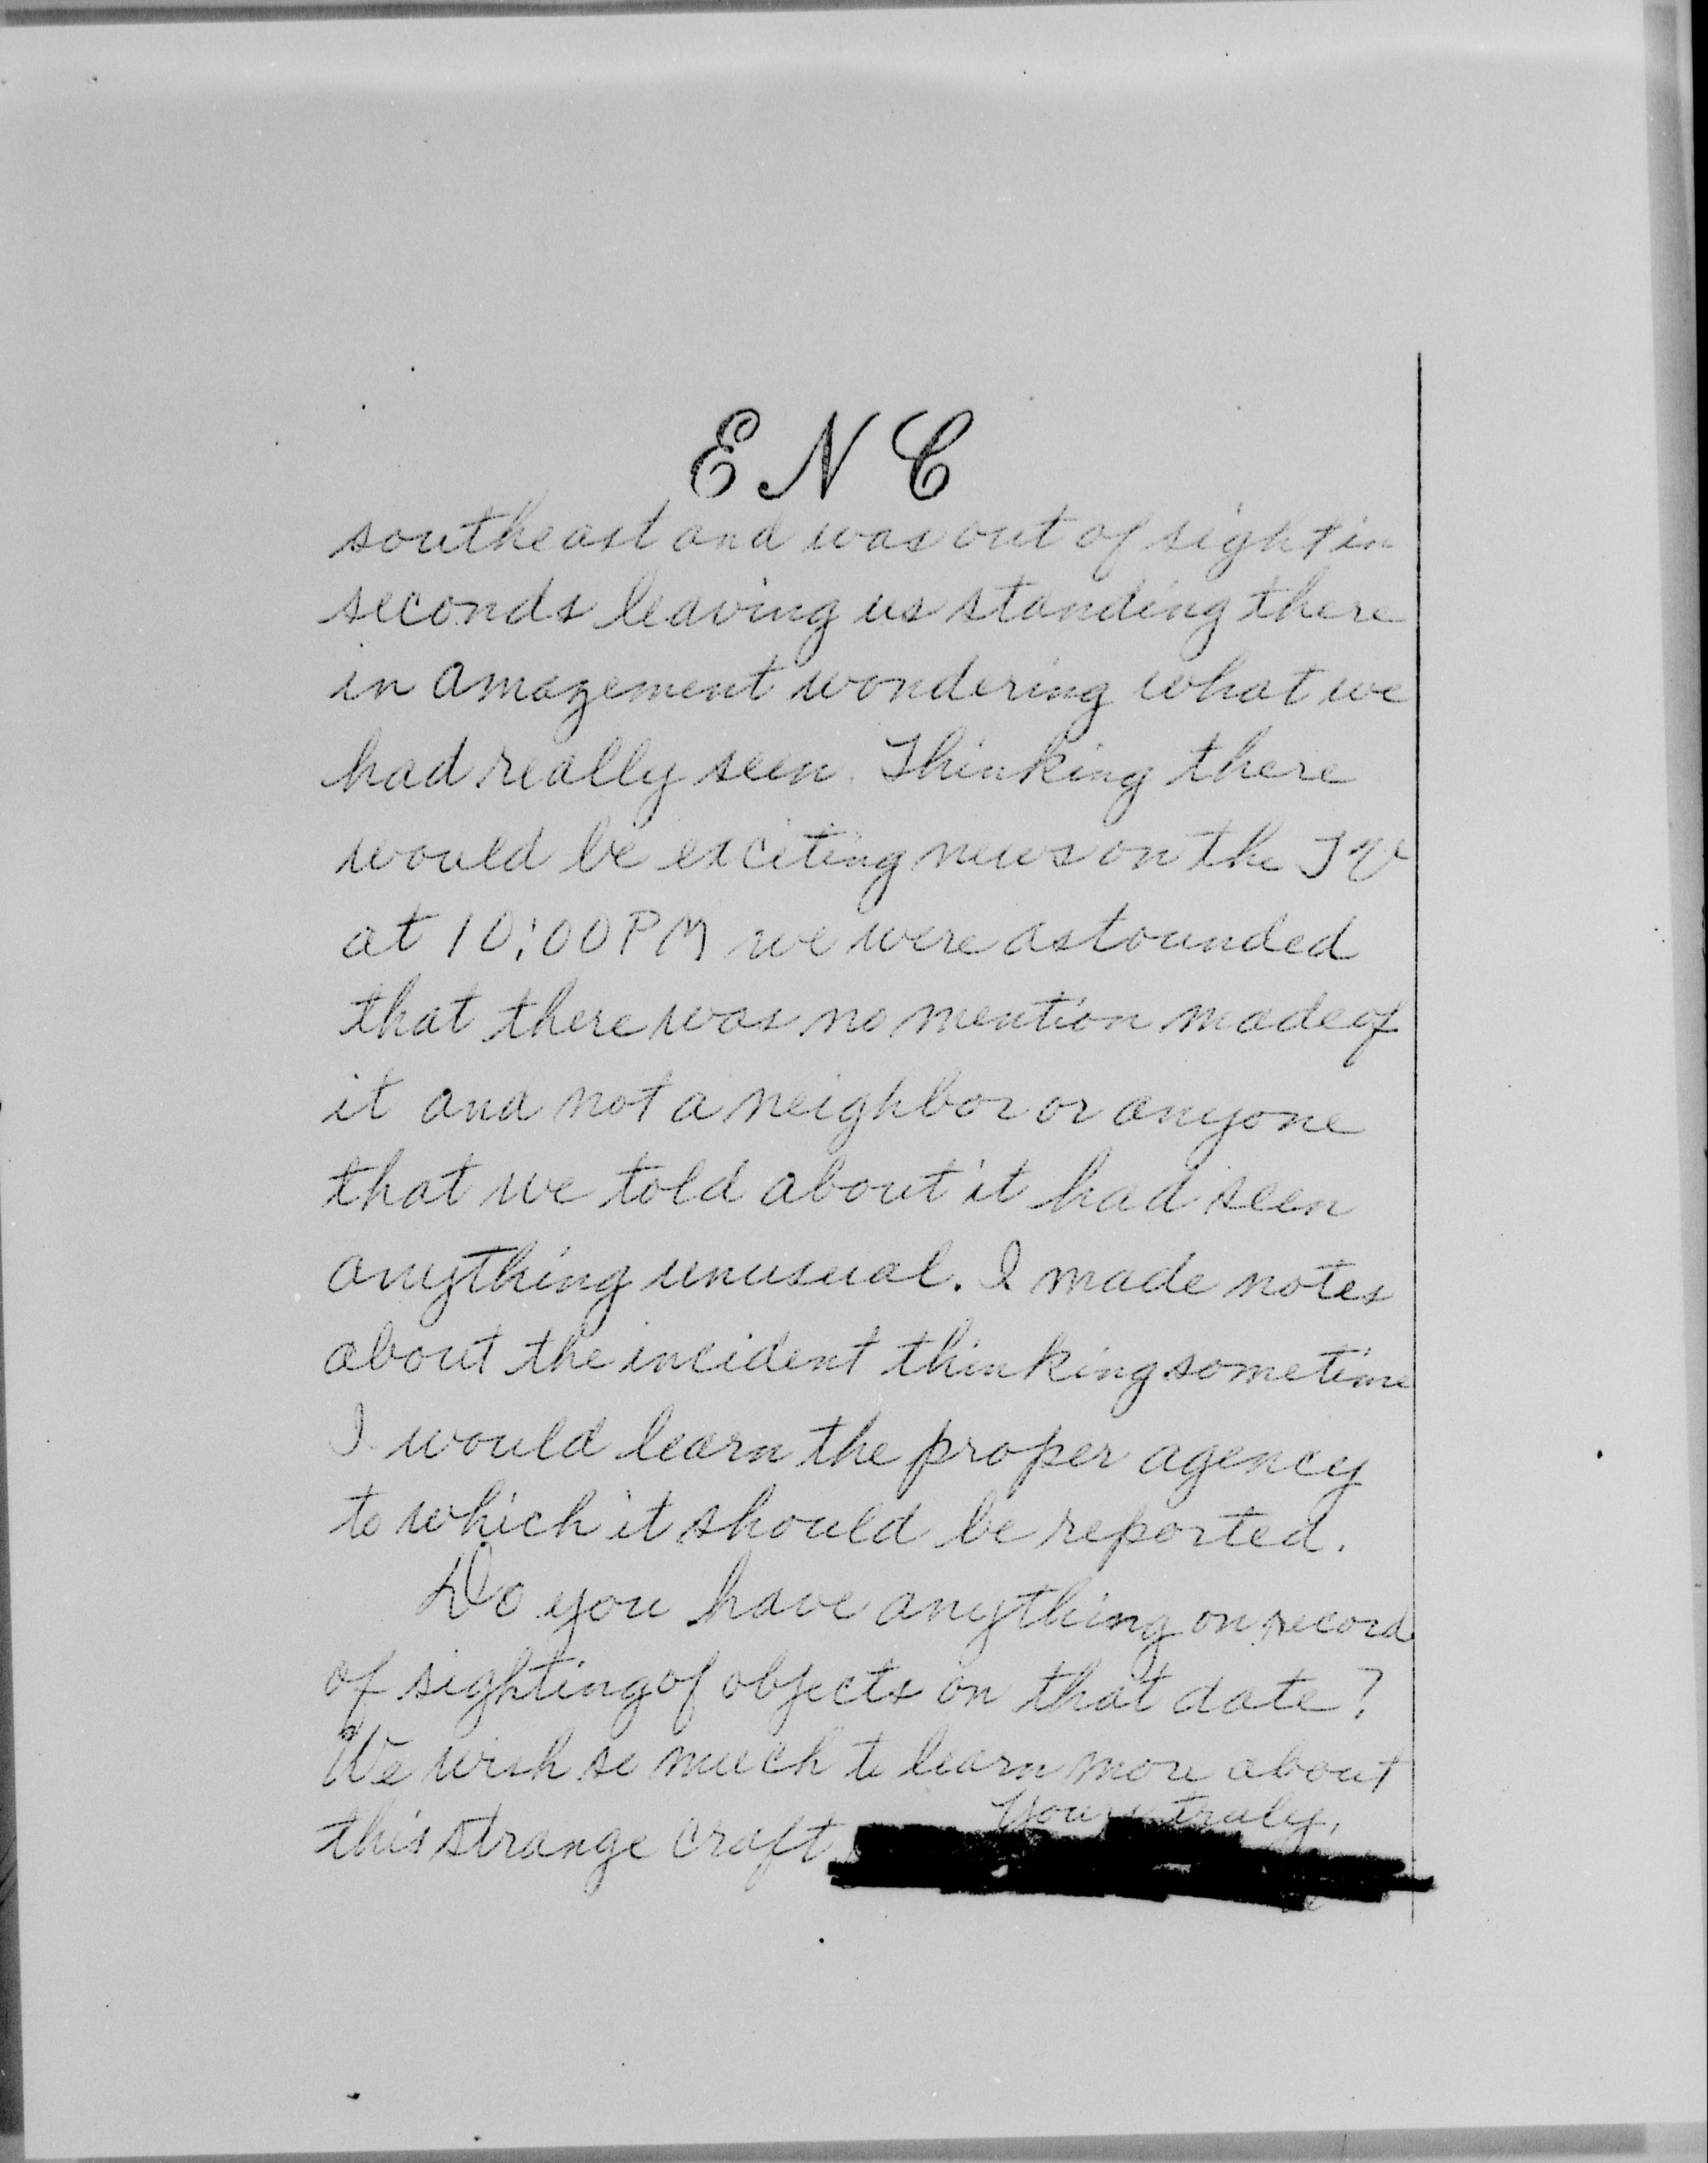 E N C
southeast and was out of sight in
seconds leaving us standing there
in amazement wondering what we
had really seen. Thinking there
would be exciting news on the TV
at 10:00 PM we were astounded
that there was no mention made of
it and not a neighbor or anyone
that we told about it had seen
anything unusual. I made notes
about the incident thinking sometime
I would learn the proper agency
to which it should be reported.
Do you have anything on record
of sighting of objects on that date?
We wish so much to learn more about
this strange craft.
Yours truly,